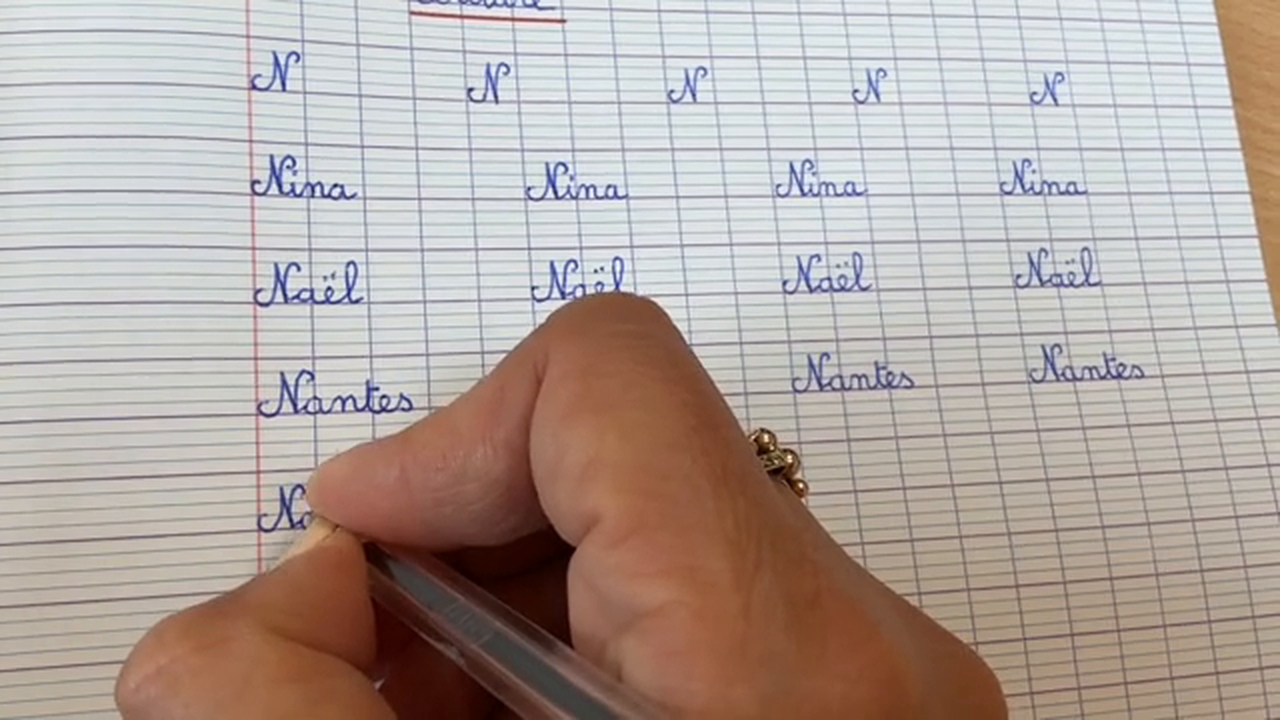 N N N N N
Nina Nina Nina Nina
Naël Naël Naël Naël
Nantes Nantes Nantes